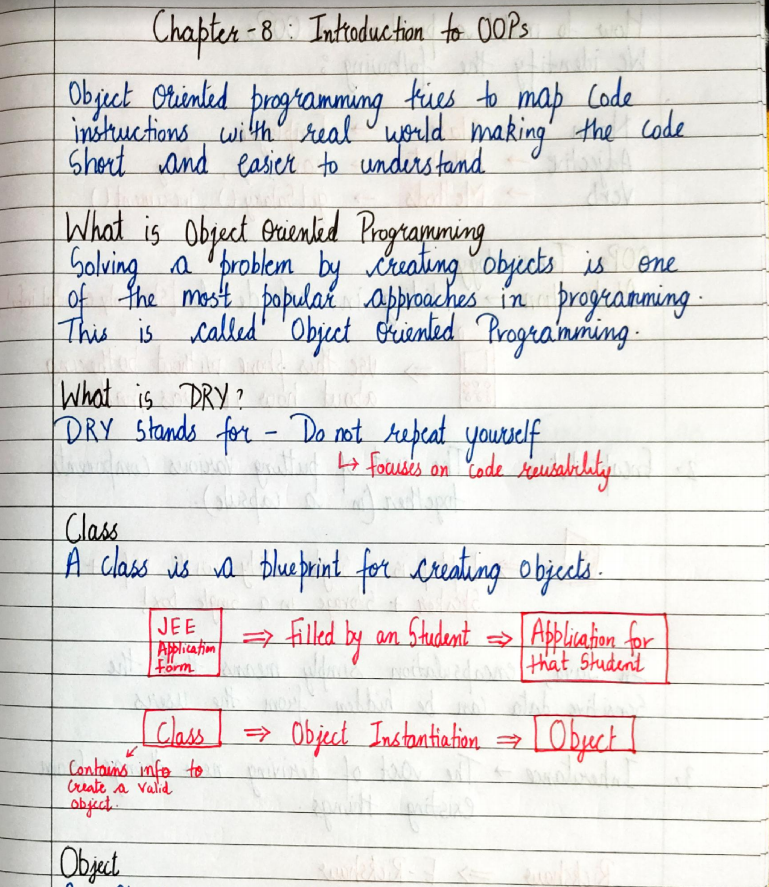 Chapter - 8 : Introduction to OOPs
Object Oriented programming tries to map Code
instructions with real world making the code
Short and easier to understand
What is Object Oriented Programming
Solving a problem by creating objects is one
of the most popular approaches in programming.
This is called Object Oriented Programming.
What is DRY?
DRY Stands for - Do not repeat yourself
↳ focuses on code reusability
Class
A class is a blueprint for creating objects.
JEE
Application
form
⇒ Filled by an Student ⇒
Application for
that Student
Class ⇒ Object Instantiation ⇒ Object
Contains info to
create a valid
object.
Object